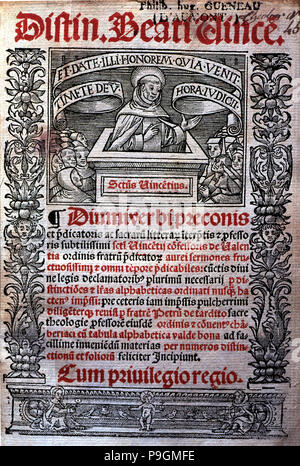 Philib. hug. GUENEAU
D'AUMONT
Distin. Beati Vincē.
ET DATE ILLI HONOREM QVIA VENIT
TIMETE DEV̄
HORA IVDICII
Sctūs Vincētius.
¶ Diui verbi preconis
et p̄dicatoris ac sacrarū litterarū īterp̄tis et p̄fesso
ris subtilissimi scti Vincētij cōfessoris de Valen
tia ordinis fratrū p̄dicatorū aurei sermones fru
ctuosissimi et omni tēpore p̄dicabiles: cūctis diui
ne legis declamatorib' plurimū necessarij p di
stinctiōes et īfas alphabeticas ordinati nūq̄ ha
cten' impssi: pre ceteris iam impssis pulcherrimi
diligēterq̄ reuisi p fratrē Petrū de tardito sacre
theologie p̄fessorē eiusdē ordinis et cōuēt' chā
beriaci cū tabula alphabetica valde bona ad fa
cillime inueniēdū materias per numeros distin
ctionū et foliorū feliciter Incipiunt.
Cum priuilegio regio.
alamy
Image ID: P9GMFE
www.alamy.com